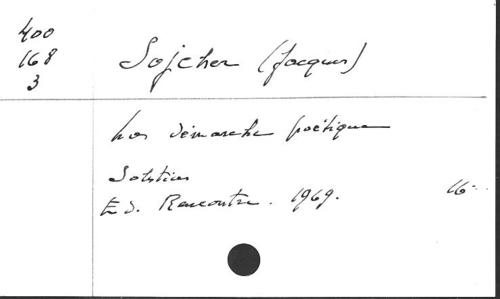 400
168
3
Sojcher (Jacques)
La démarche poétique
Solstices
Ed. Rencontre. 1969. 16-